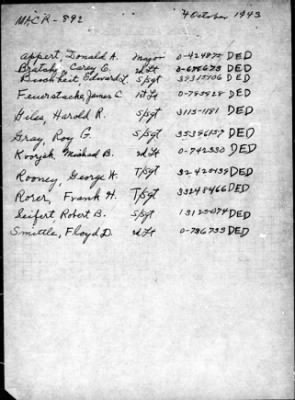 MACR-892 4 October 1943
Appert, Donald A. Major 0-424875 DED
Carey E. 2d Lt 0-676673 DED
Edward L. S/Sgt 39313706 DED
Feuerstacke, James C. 1st Lt 0-793928 DED
Giles, Harold R. S/Sgt DED
Gray, Roy G. S/Sgt 35346157 DED
Michael B. 2d Lt 0-742330 DED
Rooney, George H. T/Sgt DED
Rorer, Frank H. T/Sgt 33248466 DED
Seifert Robert B. S/Sgt DED
Smittle, Floyd D. 2d Lt 0-736733 DED